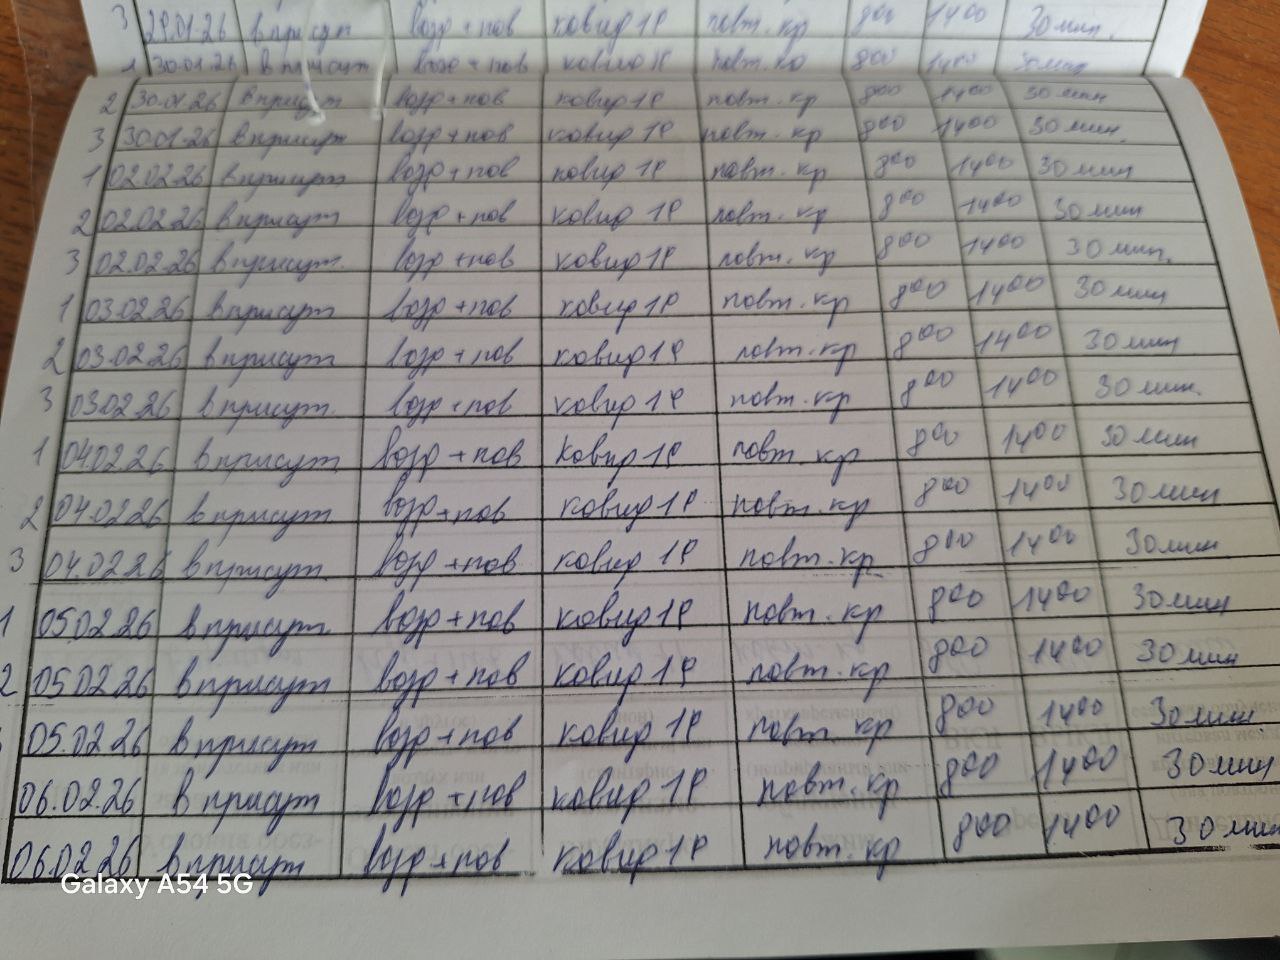 3 29.01.26 в присут возр + пов ковид 19 повт. кр 8 00 14 00 30 мин.
1 30.01.26 в присут возр + пов ковид 19 повт. кр 8 00 14 00 30 мин
2 30.01.26 в присут возр + пов ковид 19 повт. кр 8 00 14 00 30 мин
3 30.01.26 в присут возр + пов ковид 19 повт. кр 8 00 14 00 30 мин.
1 02.02.26 в присут возр + пов ковид 19 повт. кр 8 00 14 00 30 мин
2 02.02.26 в присут возр + пов ковид 19 повт. кр 8 00 14 00 30 мин
3 02.02.26 в присут. возр + пов ковид 19 повт. кр 8 00 14 00 30 мин.
1 03.02.26 в присут возр + пов ковид 19 повт. кр 8 00 14 00 30 мин
2 03.02.26 в присут возр + пов ковид 19 повт. кр 8 00 14 00 30 мин
3 03.02.26 в присут. возр + пов ковид 19 повт. кр 8 00 14 00 30 мин.
1 04.02.26 в присут возр + пов ковид 19 повт. кр 8 00 14 00 30 мин
2 04.02.26 в присут возр + пов ковид 19 повт. кр 8 00 14 00 30 мин
3 04.02.26 в присут. возр + пов ковид 19 повт. кр 8 00 14 00 30 мин
1 05.02.26 в присут. возр + пов ковид 19 повт. кр 8 00 14 00 30 мин
2 05.02.26 в присут возр + пов ковид 19 повт. кр 8 00 14 00 30 мин
05.02.26 в присут возр + пов ковид 19 повт. кр 8 00 14 00 30 мин
06.02.26 в присут возр + пов ковид 19 повт. кр 8 00 14 00 30 мин
06.02.26 в присут возр + пов ковид 19 повт. кр 8 00 14 00 30 мин
Galaxy A54 5G